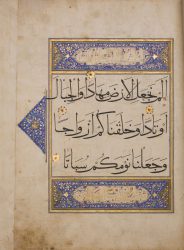 ألم نجعل الأرض مهادا والجبال
أوتادا وخلقناكم أزواجا
وجعلنا نومكم سباتا